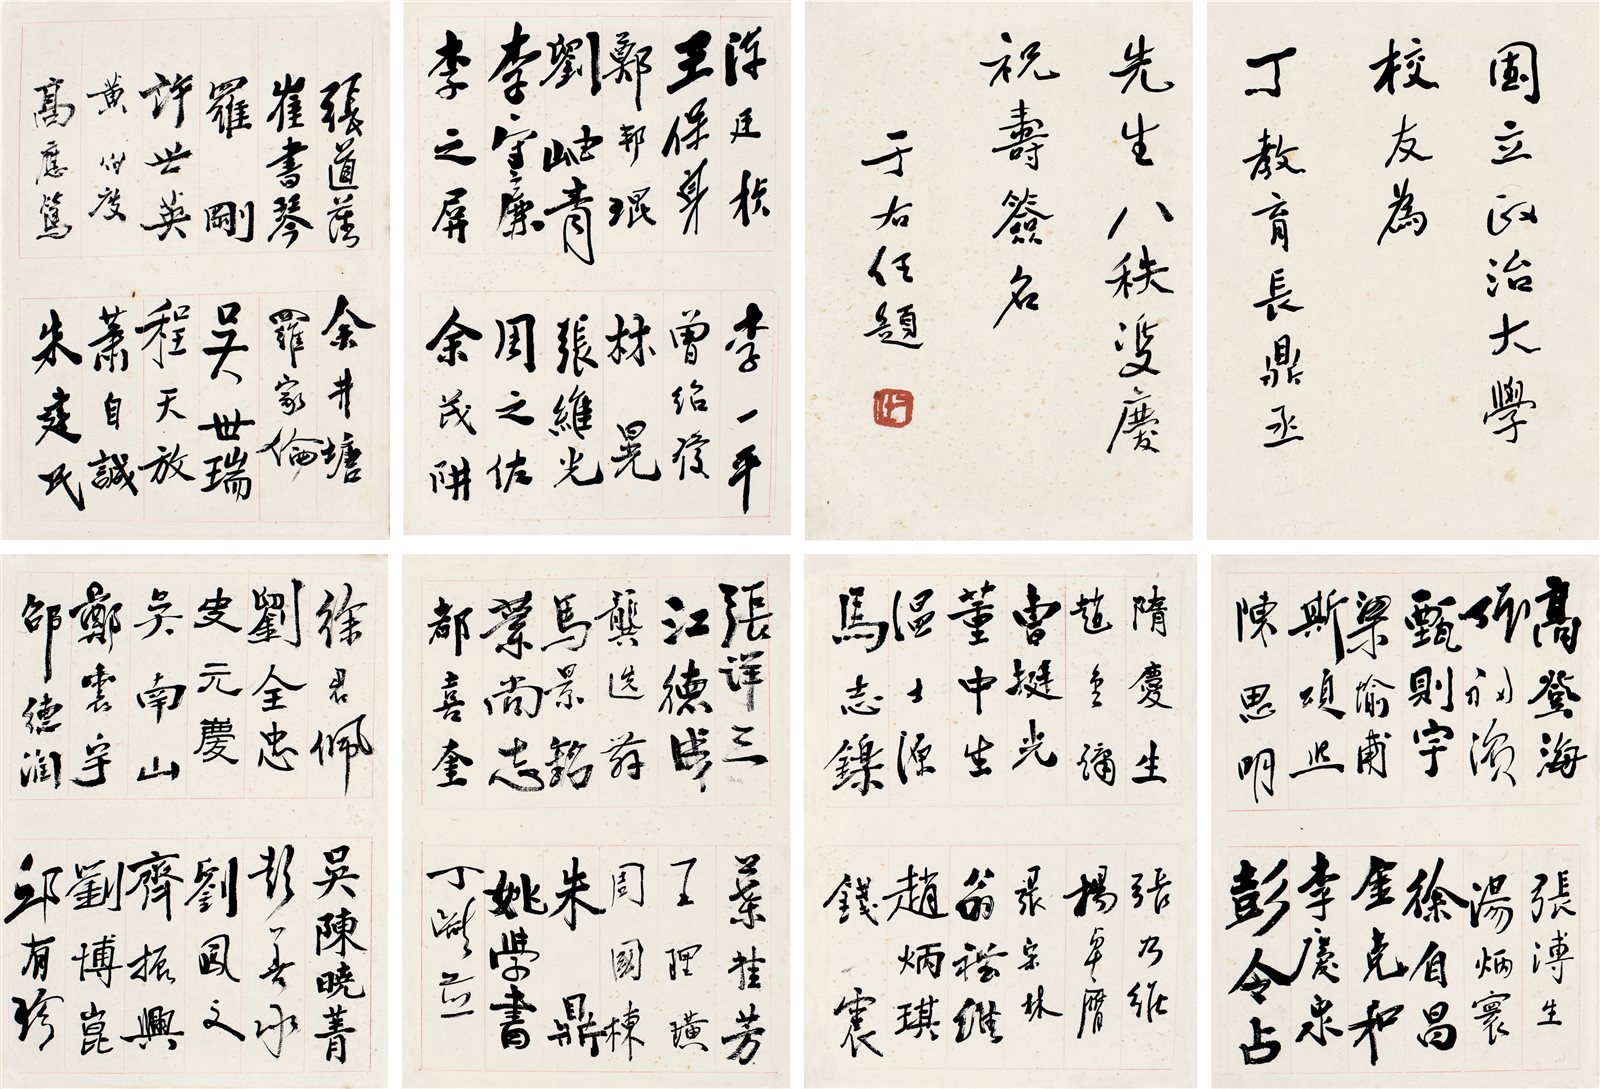 國立政治大學
校友為
丁教育長鼎丞
先生八秩雙慶
祝壽簽名
于右任題
王保身
鄭邦琨
劉岫青
李守廉
李之屏
李一平
曾紹
林晃
張維光
周之佐
余茂阱
張道藩
崔書琴
羅剛
許世英
黃伯度
高應篤
余井塘
羅家倫
吳世瑞
程天放
蕭自誠
朱建民
高登海
甄則宇
梁愉甫
斯頌熙
陳思明
張溥生
湯炳寰
徐自昌
金克和
李慶泉
彭令占
隋慶生
曹挺光
董申生
溫士源
馬志鑠
張乃維
楊卓膺
張宗林
趙炳琪
錢震
張詳三
江德成
龔選舜
馬景銘
葉尚志
都喜奎
葉桂芳
王理璜
周國棟
朱鼎
姚學書
徐君佩
劉全忠
史元慶
吳南山
鄭震宇
邵德潤
吳陳曉菁
彭善承
劉鳳文
齊振興
劉博崑
邱有珍